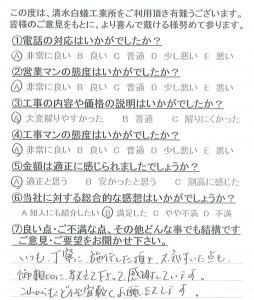 この度は、清水白蟻工業所をご利用頂き有難うございます。
皆様のご意見をもとに、より喜んで戴ける様努めて参ります。
①電話の対応はいかがでしたか?
A 非常に良い B 良い C 普通 D 少し悪い E 悪い
②営業マンの態度はいかがでしたか?
A 非常に良い B 良い C 普通 D 少し悪い E 悪い
③工事の内容や価格の説明はいかがでしたか?
A 大変解りやすかった B 普通 C 解りにくかった
④工事マンの態度はいかがでしたか?
A 非常に良い B 良い C 普通 D 少し悪い E 悪い
⑤金額は適正に感じられましたでしょうか?
A 適正と思う B 安かったと思う C 割高に感じた
⑥当社に対する総合的な感想はいかがですか?
A 知人にも紹介したい B 満足した C やや不満 D 不満
⑦良い点・ご不満な点、その他どんな事でも結構です
ご意見・ご要望をお聞かせ下さい。
いつも、丁寧に施行した頂き、気づいた点も
教えて下さって感謝しています。
これからもどうぞ宜敷くお願い致します。